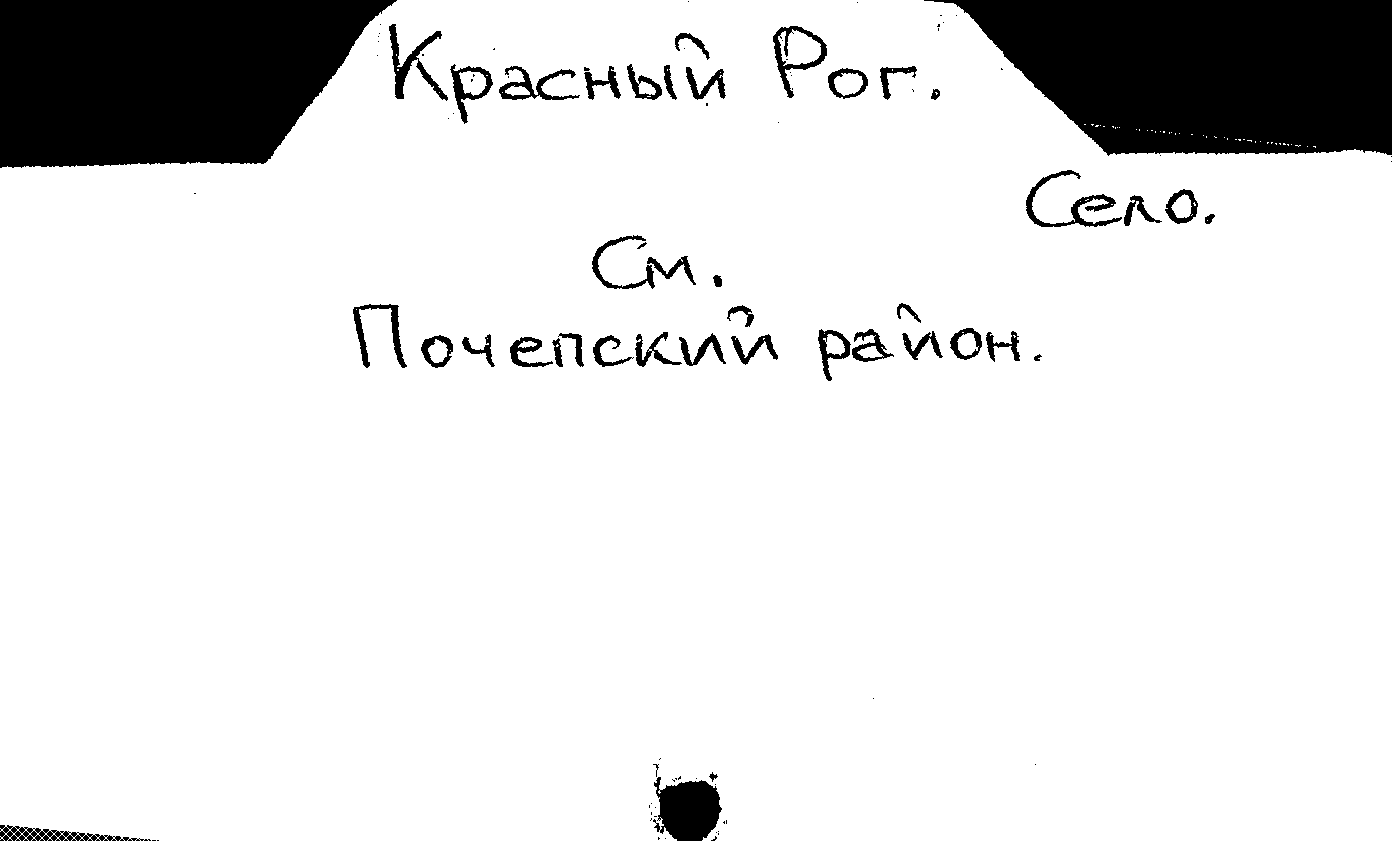 Красный Рог.
Село.
См.
Почепский район.